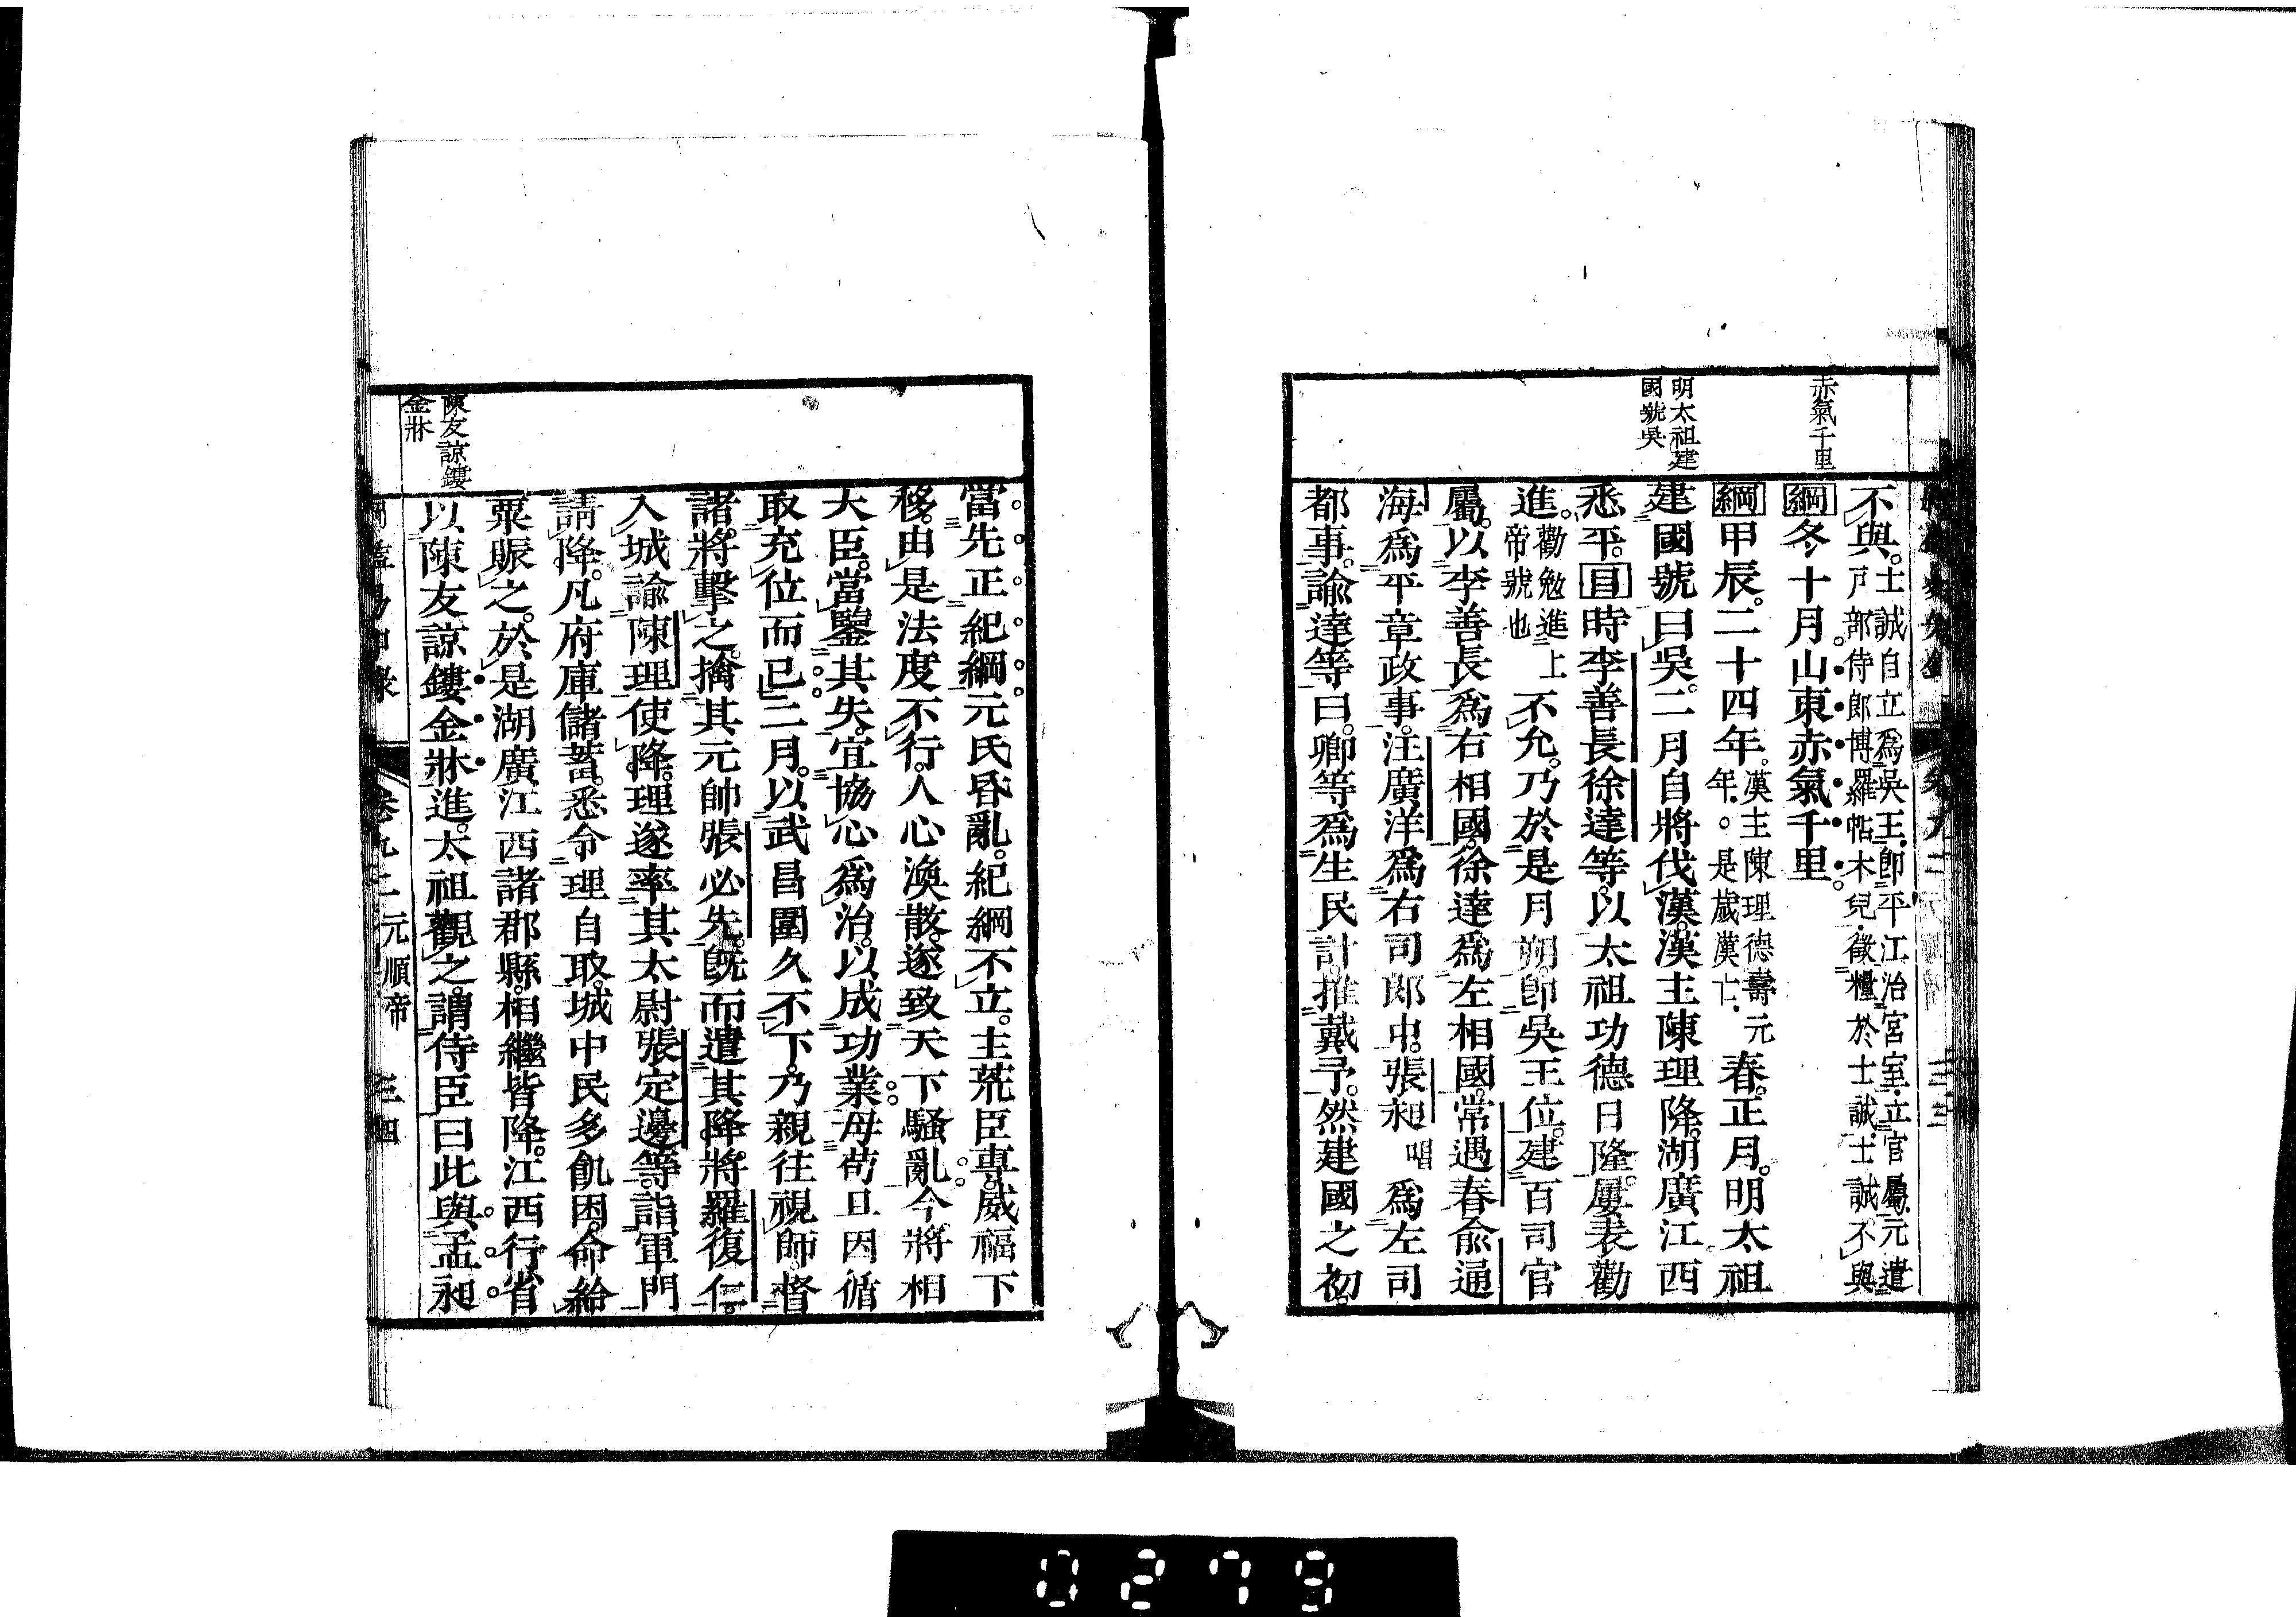 赤氣千里
明太祖建
國號吳
不與。士誠自立爲吳王。卽平江治宮室。立官屬。元遣
戸部侍郎博羅帖木兒。徵糧於士誠。士誠不與
綱冬十月。山東赤氣千里。
綱甲辰。二十四年。漢主陳理德壽元
年。是歲漢亡。春。正月。明太祖
建國號曰吳。二月自將伐漢。漢主陳理降。湖廣江西
悉平。目時李善長徐達等。以太祖功德日隆。屢表勸
進。勸勉進上
帝號也不允。乃於是月朔。卽吳王位。建百司官
屬。以李善長爲右相國。徐達爲左相國。常遇春俞通
海爲平章政事。汪廣洋爲右司郎中。張昶唱爲左司
都事。諭達等曰。卿等爲生民計。推戴予。然建國之初。
當先正紀綱。元氏昏亂。紀綱不立。主荒臣專。威福下
移。由是法度不行。人心渙散。遂致天下騷亂。今將相
大臣。當鑒其失。宜協心爲治。以成功業。毋苟且因循
取充位而已。二月。以武昌圍久不下。乃親往視師。督
諸將擊之。擒其元帥張必先。旣而遣其降將羅復仁。
入城諭陳理使降。理遂率其太尉張定邊等。詣軍門
請降。凡府庫儲蓄。悉令理自取。城中民多飢困。命給
粟賑之。於是湖廣江西諸郡縣。相繼皆降。江西行省
以陳友諒鏤金牀進。太祖觀之。謂侍臣曰此與孟昶
陳友諒鏤
金牀
卷九二 元順帝 三四
0279